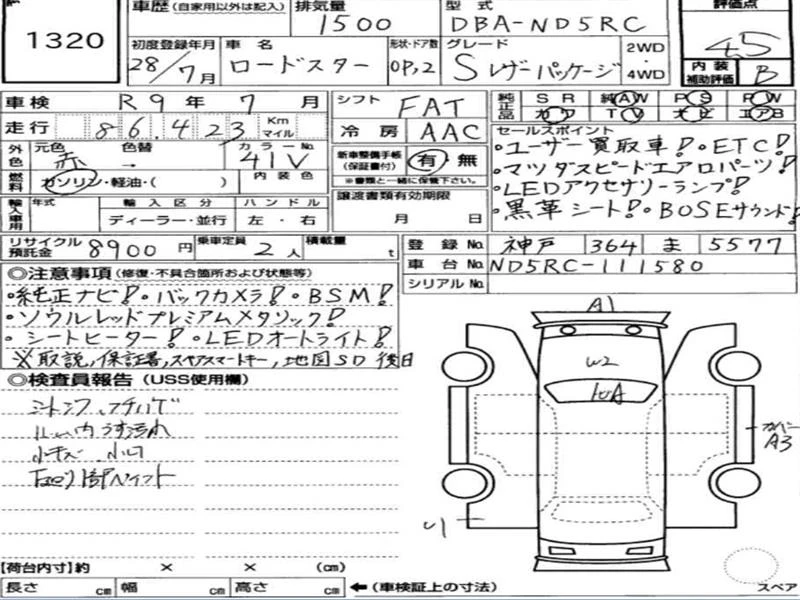 1320
車歴(自家用以外は記入)
排気量
1500
型式
DBA-ND5RC
評価点
4.5
内装補助評価
B
初度登録年月
28/7月
車名
ロードスター
形状・ドア数
OP,2
グレード
Sレザーパッケージ
2WD
・
4WD
車検 R9年7月
シフト FAT
走行 86,423 Km マイル
冷房 AAC
純正品
SR 純AW PS PW
カワ TV ナビ エアB
外色
元色 赤
色替 →
カラーNo. 41V
燃料
ガソリン・軽油・( )
内装色
新車整備手帳(保証書付)
有・無
※書類と一緒に保管下さい。
輸入車用
年式
輸入区分
ディーラー・並行
ハンドル
左・右
譲渡書類有効期限
月 日
セールスポイント
・ユーザー買取車!・ETC!
・マツダスピードエアロパーツ!
・LEDアクセサリーランプ!
・黒革シート!・BOSEサウンド!
リサイクル預託金 8900円
乗車定員 2人
積載量 t
登録No. 神戸 364 ま 5577
車台No. ND5RC-111580
シリアルNo.
◎注意事項(修復・不具合箇所および状態等)
・純正ナビ!・バックカメラ!・BSM!
・ソウルレッドプレミアムメタリック!
・シートヒーター!・LEDオートライト!
※取説,保証書,スペアスマートキー,地図SD後日
◎検査員報告(USS使用欄)
小キズ 小凹
A1
W2
カバー
A3
U1
【荷台内寸】約 × × (cm)
長さ cm 幅 cm 高さ cm ←(車検証上の寸法)
スペア